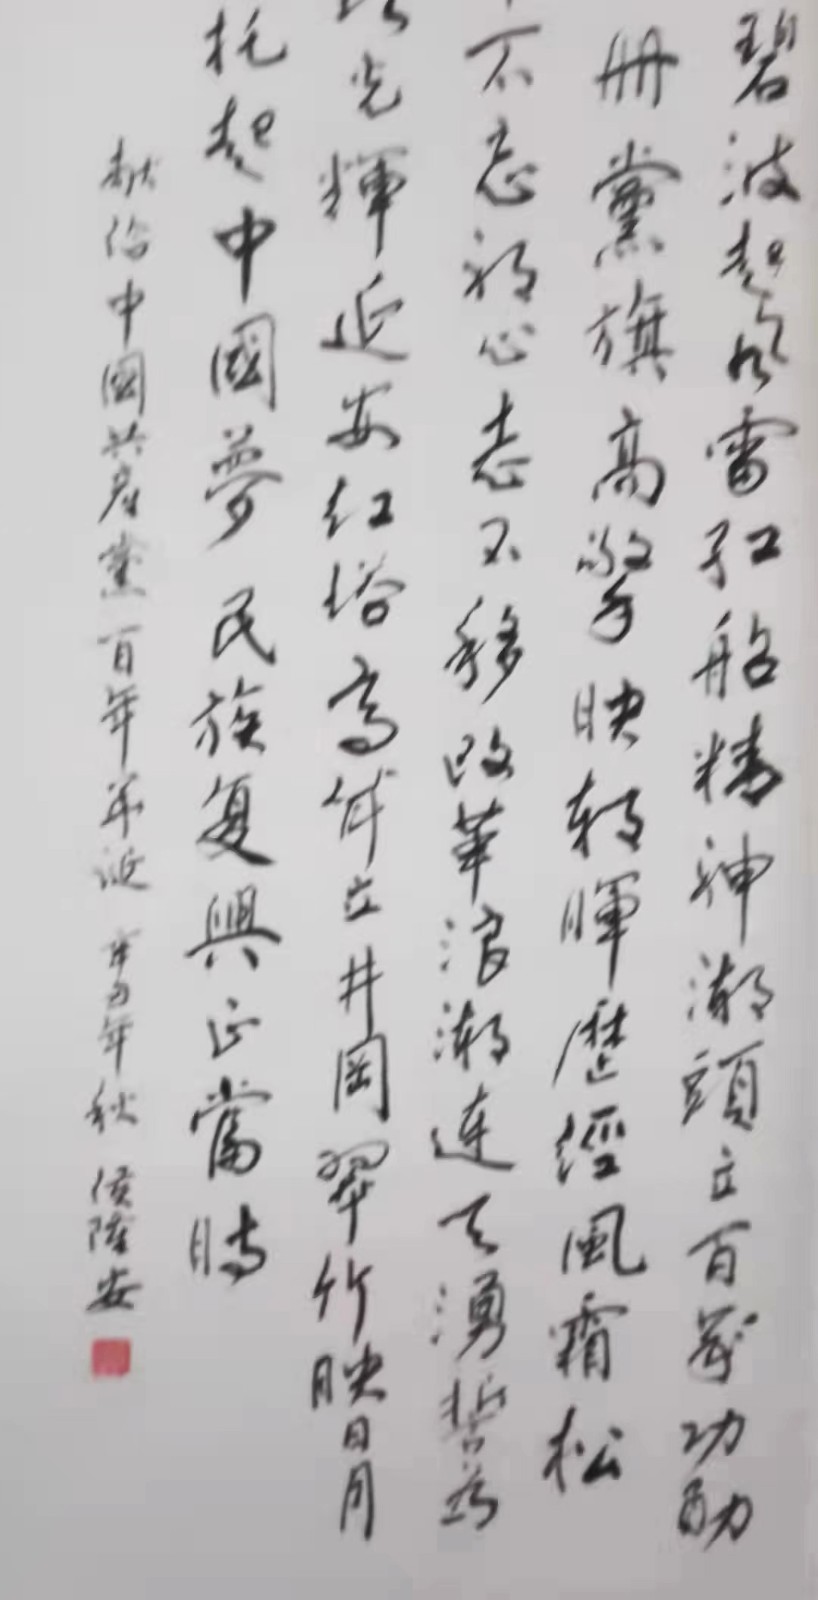 碧波起風雷紅船精神潮頭立百歲功勛
冊黨旗高擎映朝暉歷經風霜松
不忘初心志不移改革浪潮連天湧誓為
光輝延安紅塔高聳立井岡翠竹映日月
托起中國夢民族复興正當時
献给中國共产黨百年华诞辛丑年秋侯隆安